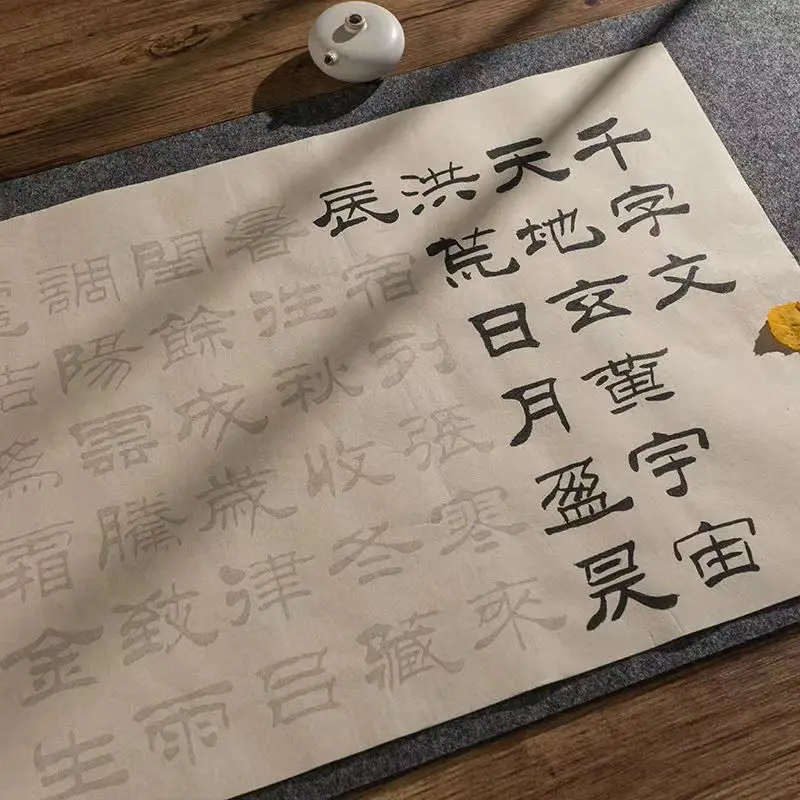 千字文
天地玄黃宇宙
洪荒日月盈昃
辰宿列張寒來
暑往秋收冬藏
閏餘成歲律呂
調陽雲騰致雨
爲霜金生